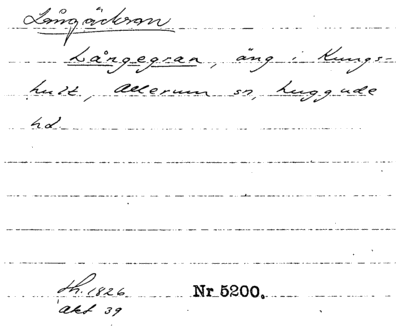 Långäckran
Långegran, äng i Kungs-
hult, Allerum sn, Luggude
hd
Sh. 1826
akt 39
Nr 5200.